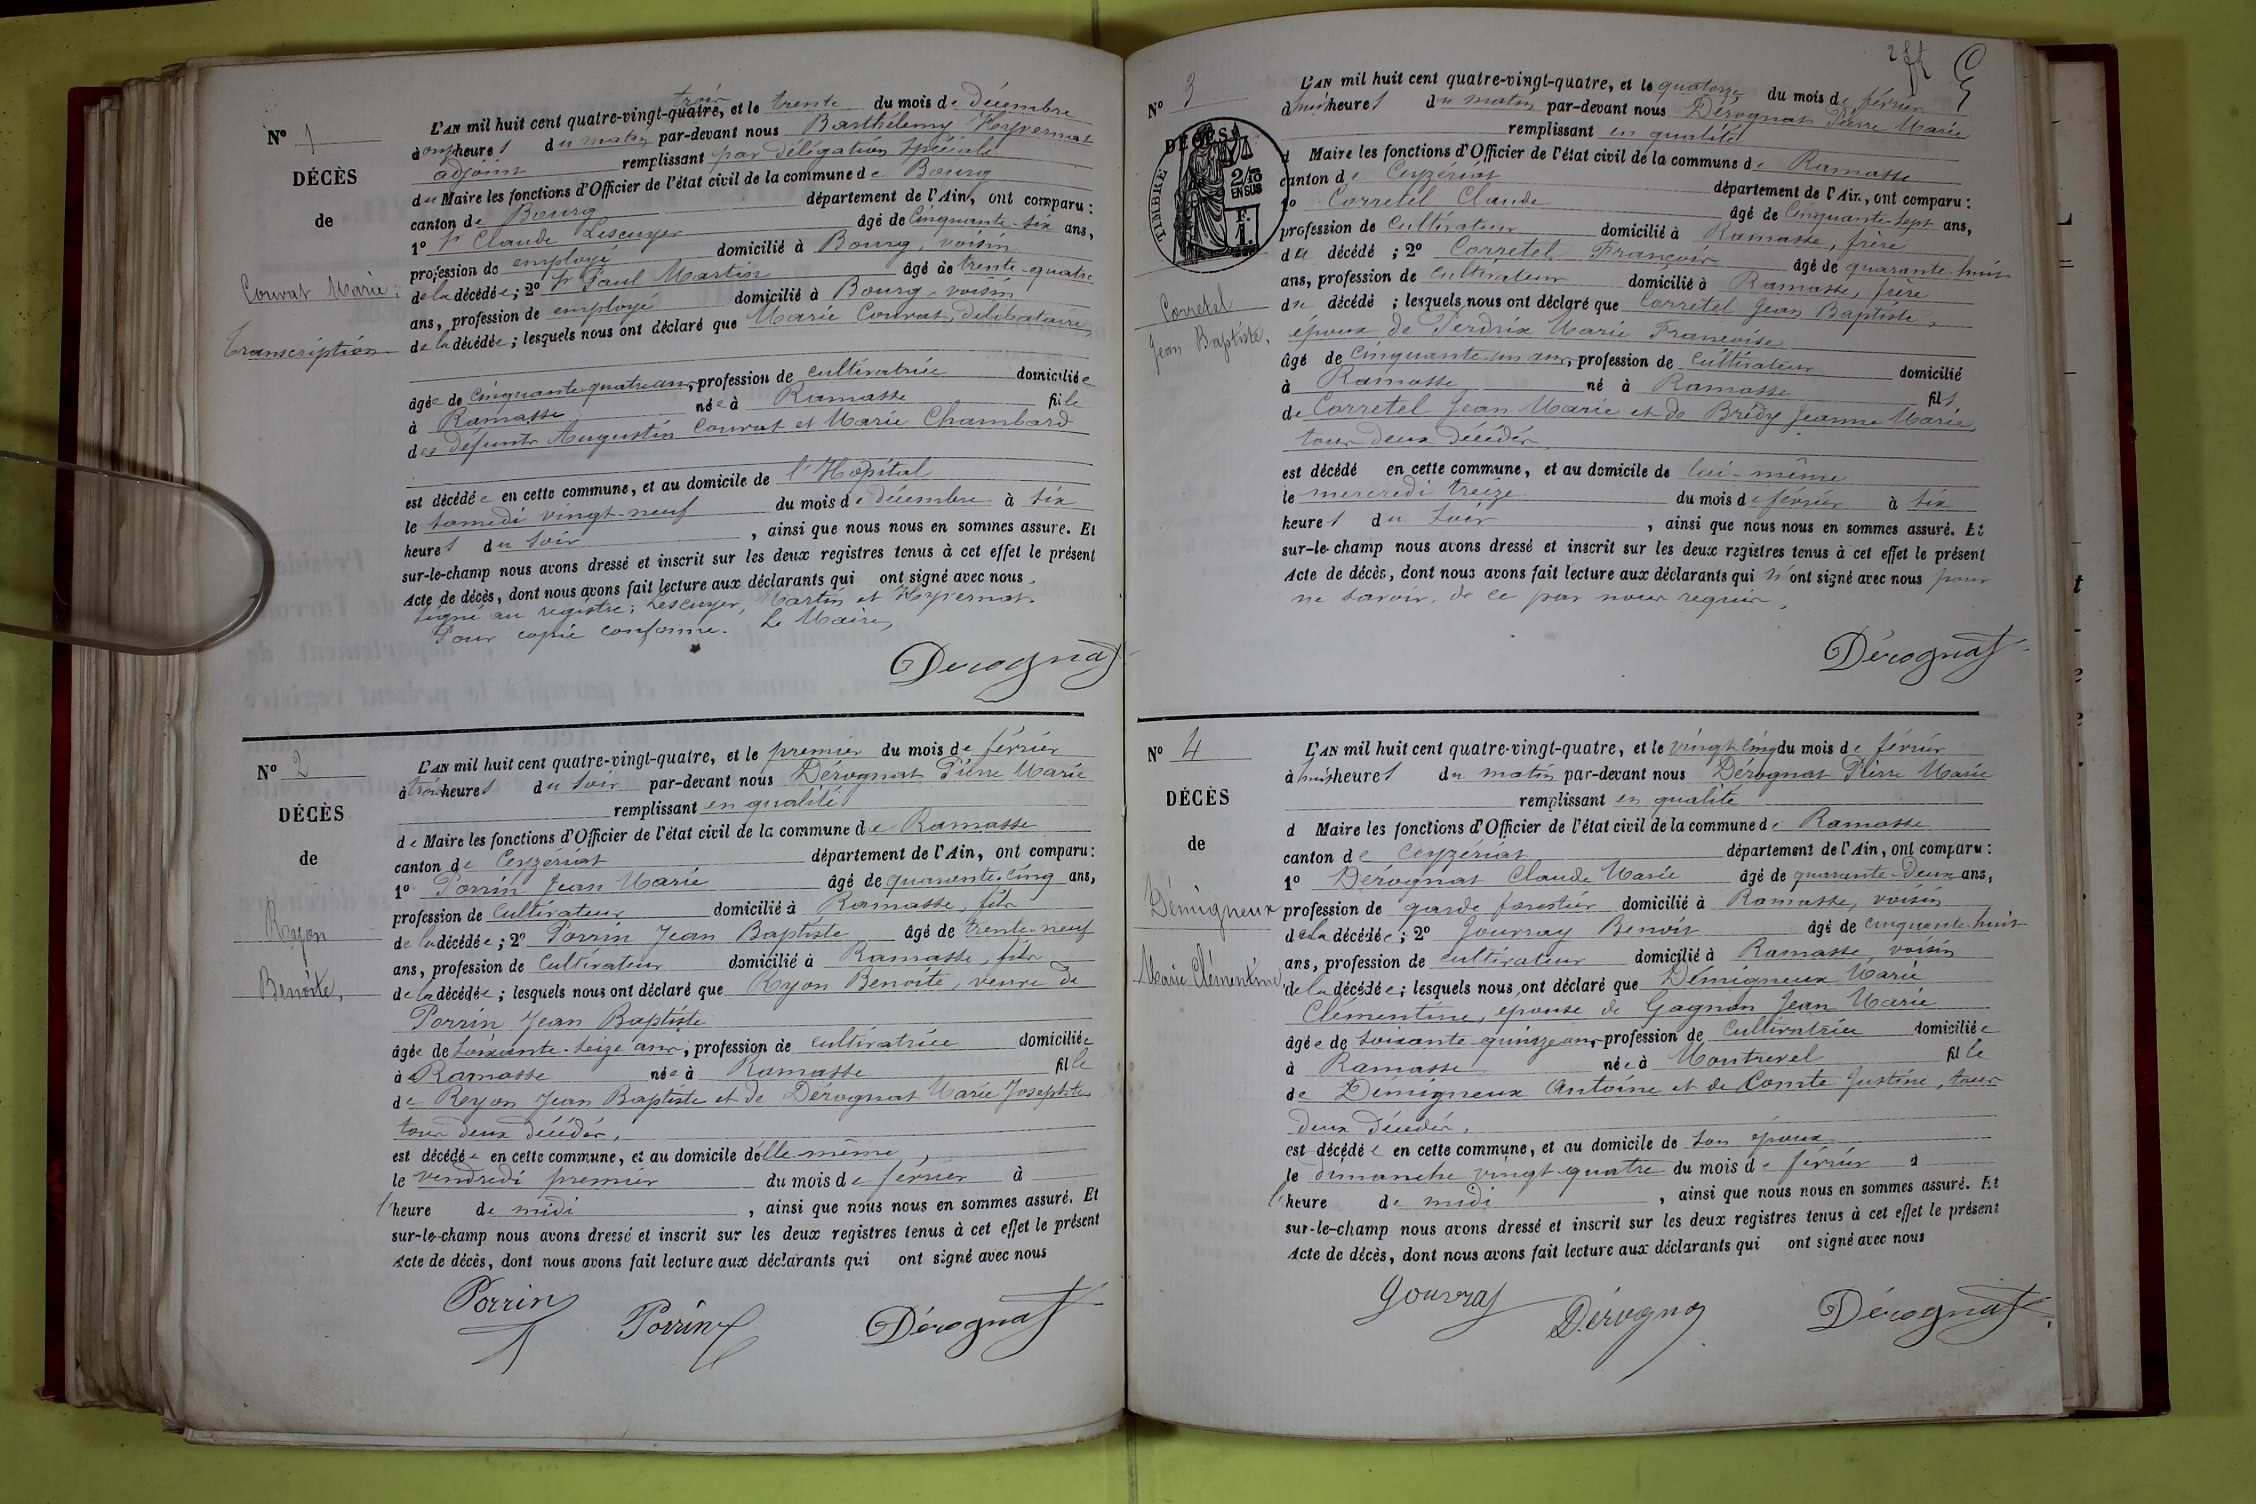 N° 1
DÉCÈS
de
Couvat Marie
Transcription
trois
L'AN mil huit cent quatre-vingt-quatre, et le trente du mois de décembre
à onze heures du matin par-devant nous Barthélemy Hyvernat
adjoint remplissant par délégation spéciale
du Maire les fonctions d'Officier de l'état civil de la commune de Bourg
canton de Bourg département de l'Ain, ont comparu :
1° Sr Claude Lescuyer âgé de Cinquante-six ans,
profession de employé domicilié à Bourg, voisin
de la décédée ; 2° Sr Paul Martin âgé de trente-quatre
ans, profession de employé domicilié à Bourg, voisin
de la décédée ; lesquels nous ont déclaré que Marie Couvat, célibataire
âgée de Cinquante quatre ans, profession de cultivatrice domiciliée
à Ramasse née à Ramasse fille
des défunts Augustin Couvat et Marie Chambard
est décédée en cette commune, et au domicile de l'Hôpital
le samedi vingt-neuf du mois de décembre à six
heures du soir, ainsi que nous nous en sommes assuré. Et
sur-le-champ nous avons dressé et inscrit sur les deux registres tenus à cet effet le présent
Acte de décès, dont nous avons fait lecture aux déclarants qui ont signé avec nous.
Signé au registre : Lescuyer, Martin et Hyvernat.
Pour copie conforme. Le Maire,
Dérognat
N° 2
DÉCÈS
de
Ryon
Benoîte,
L'AN mil huit cent quatre-vingt-quatre, et le premier du mois de février
à trois heures du soir par-devant nous Dérognat Pierre Marie
remplissant en qualité
de Maire les fonctions d'Officier de l'état civil de la commune de Ramasse
canton de Ceyzériat département de l'Ain, ont comparu :
1° Porrin Jean Marie âgé de quarante-cinq ans,
profession de Cultivateur domicilié à Ramasse, fils
de la décédée ; 2° Porrin Jean Baptiste âgé de trente-neuf
ans, profession de Cultivateur domicilié à Ramasse, fils
de la décédée ; lesquels nous ont déclaré que Ryon Benoîte, veuve de
Porrin Jean Baptiste
âgée de soixante-seize ans, profession de cultivatrice domiciliée
à Ramasse née à Ramasse fille
de Ryon Jean Baptiste et de Dérognat Marie Josephte
tous deux décédés,
est décédée en cette commune, et au domicile d'elle-même,
le vendredi premier du mois de février à
l'heure de midi, ainsi que nous nous en sommes assuré. Et
sur-le-champ nous avons dressé et inscrit sur les deux registres tenus à cet effet le présent
Acte de décès, dont nous avons fait lecture aux déclarants qui ont signé avec nous
Porrin Porrin Dérognat
N° 3
DÉCÈS
TIMBRE
2/10
EN SUS
Corretel
Jean Baptiste,
L'AN mil huit cent quatre-vingt-quatre, et le quatorze du mois de février
à huit heures du matin par-devant nous Dérognat Pierre Marie
remplissant en qualité
d Maire les fonctions d'Officier de l'état civil de la commune de Ramasse
canton de Ceyzériat département de l'Ain, ont comparu :
1° Corretel Claude âgé de Cinquante-sept ans,
profession de Cultivateur domicilié à Ramasse, frère
du décédé ; 2° Corretel François âgé de quarante-huit
ans, profession de cultivateur domicilié à Ramasse, frère
du décédé ; lesquels nous ont déclaré que Corretel Jean Baptiste,
époux de Perdrix Marie Françoise
âgé de Cinquante un ans, profession de cultivateur domicilié
à Ramasse né à Ramasse fils
de Corretel Jean Marie et de Brédy Jeanne Marie,
tous deux décédés
est décédé en cette commune, et au domicile de lui-même
le mercredi treize du mois de février à six
heures du soir, ainsi que nous nous en sommes assuré. Et
sur-le-champ nous avons dressé et inscrit sur les deux registres tenus à cet effet le présent
Acte de décès, dont nous avons fait lecture aux déclarants qui n'ont signé avec nous pour
ne savoir, de ce par nous requis.
Dérognat
N° 4
DÉCÈS
de
Démigneux
Marie Clémentine
L'AN mil huit cent quatre-vingt-quatre, et le vingt cinq du mois de février
à huit heures du matin par-devant nous Dérognat Pierre Marie
remplissant en qualité
d Maire les fonctions d'Officier de l'état civil de la commune de Ramasse
canton de Ceyzériat département de l'Ain, ont comparu :
1° Dérognat Claude Marie âgé de quarante-deux ans,
profession de garde forestier domicilié à Ramasse, voisin
de la décédée ; 2° Gouvray Benoît âgé de cinquante-huit
ans, profession de cultivateur domicilié à Ramasse, voisin
de la décédée ; lesquels nous ont déclaré que Démigneux Marie
Clémentine, épouse de Gagnon Jean Marie
âgée de soixante-quinze ans, profession de Cultivatrice domiciliée
à Ramasse née à Montrevel fille
de Démigneux Antoine et de Comte Justine, tous
deux décédés,
est décédée en cette commune, et au domicile de son époux
le dimanche vingt-quatre du mois de février à
l'heure de midi, ainsi que nous nous en sommes assuré. Et
sur-le-champ nous avons dressé et inscrit sur les deux registres tenus à cet effet le présent
Acte de décès, dont nous avons fait lecture aux déclarants qui ont signé avec nous
Gouvray Dérognat Dérognat